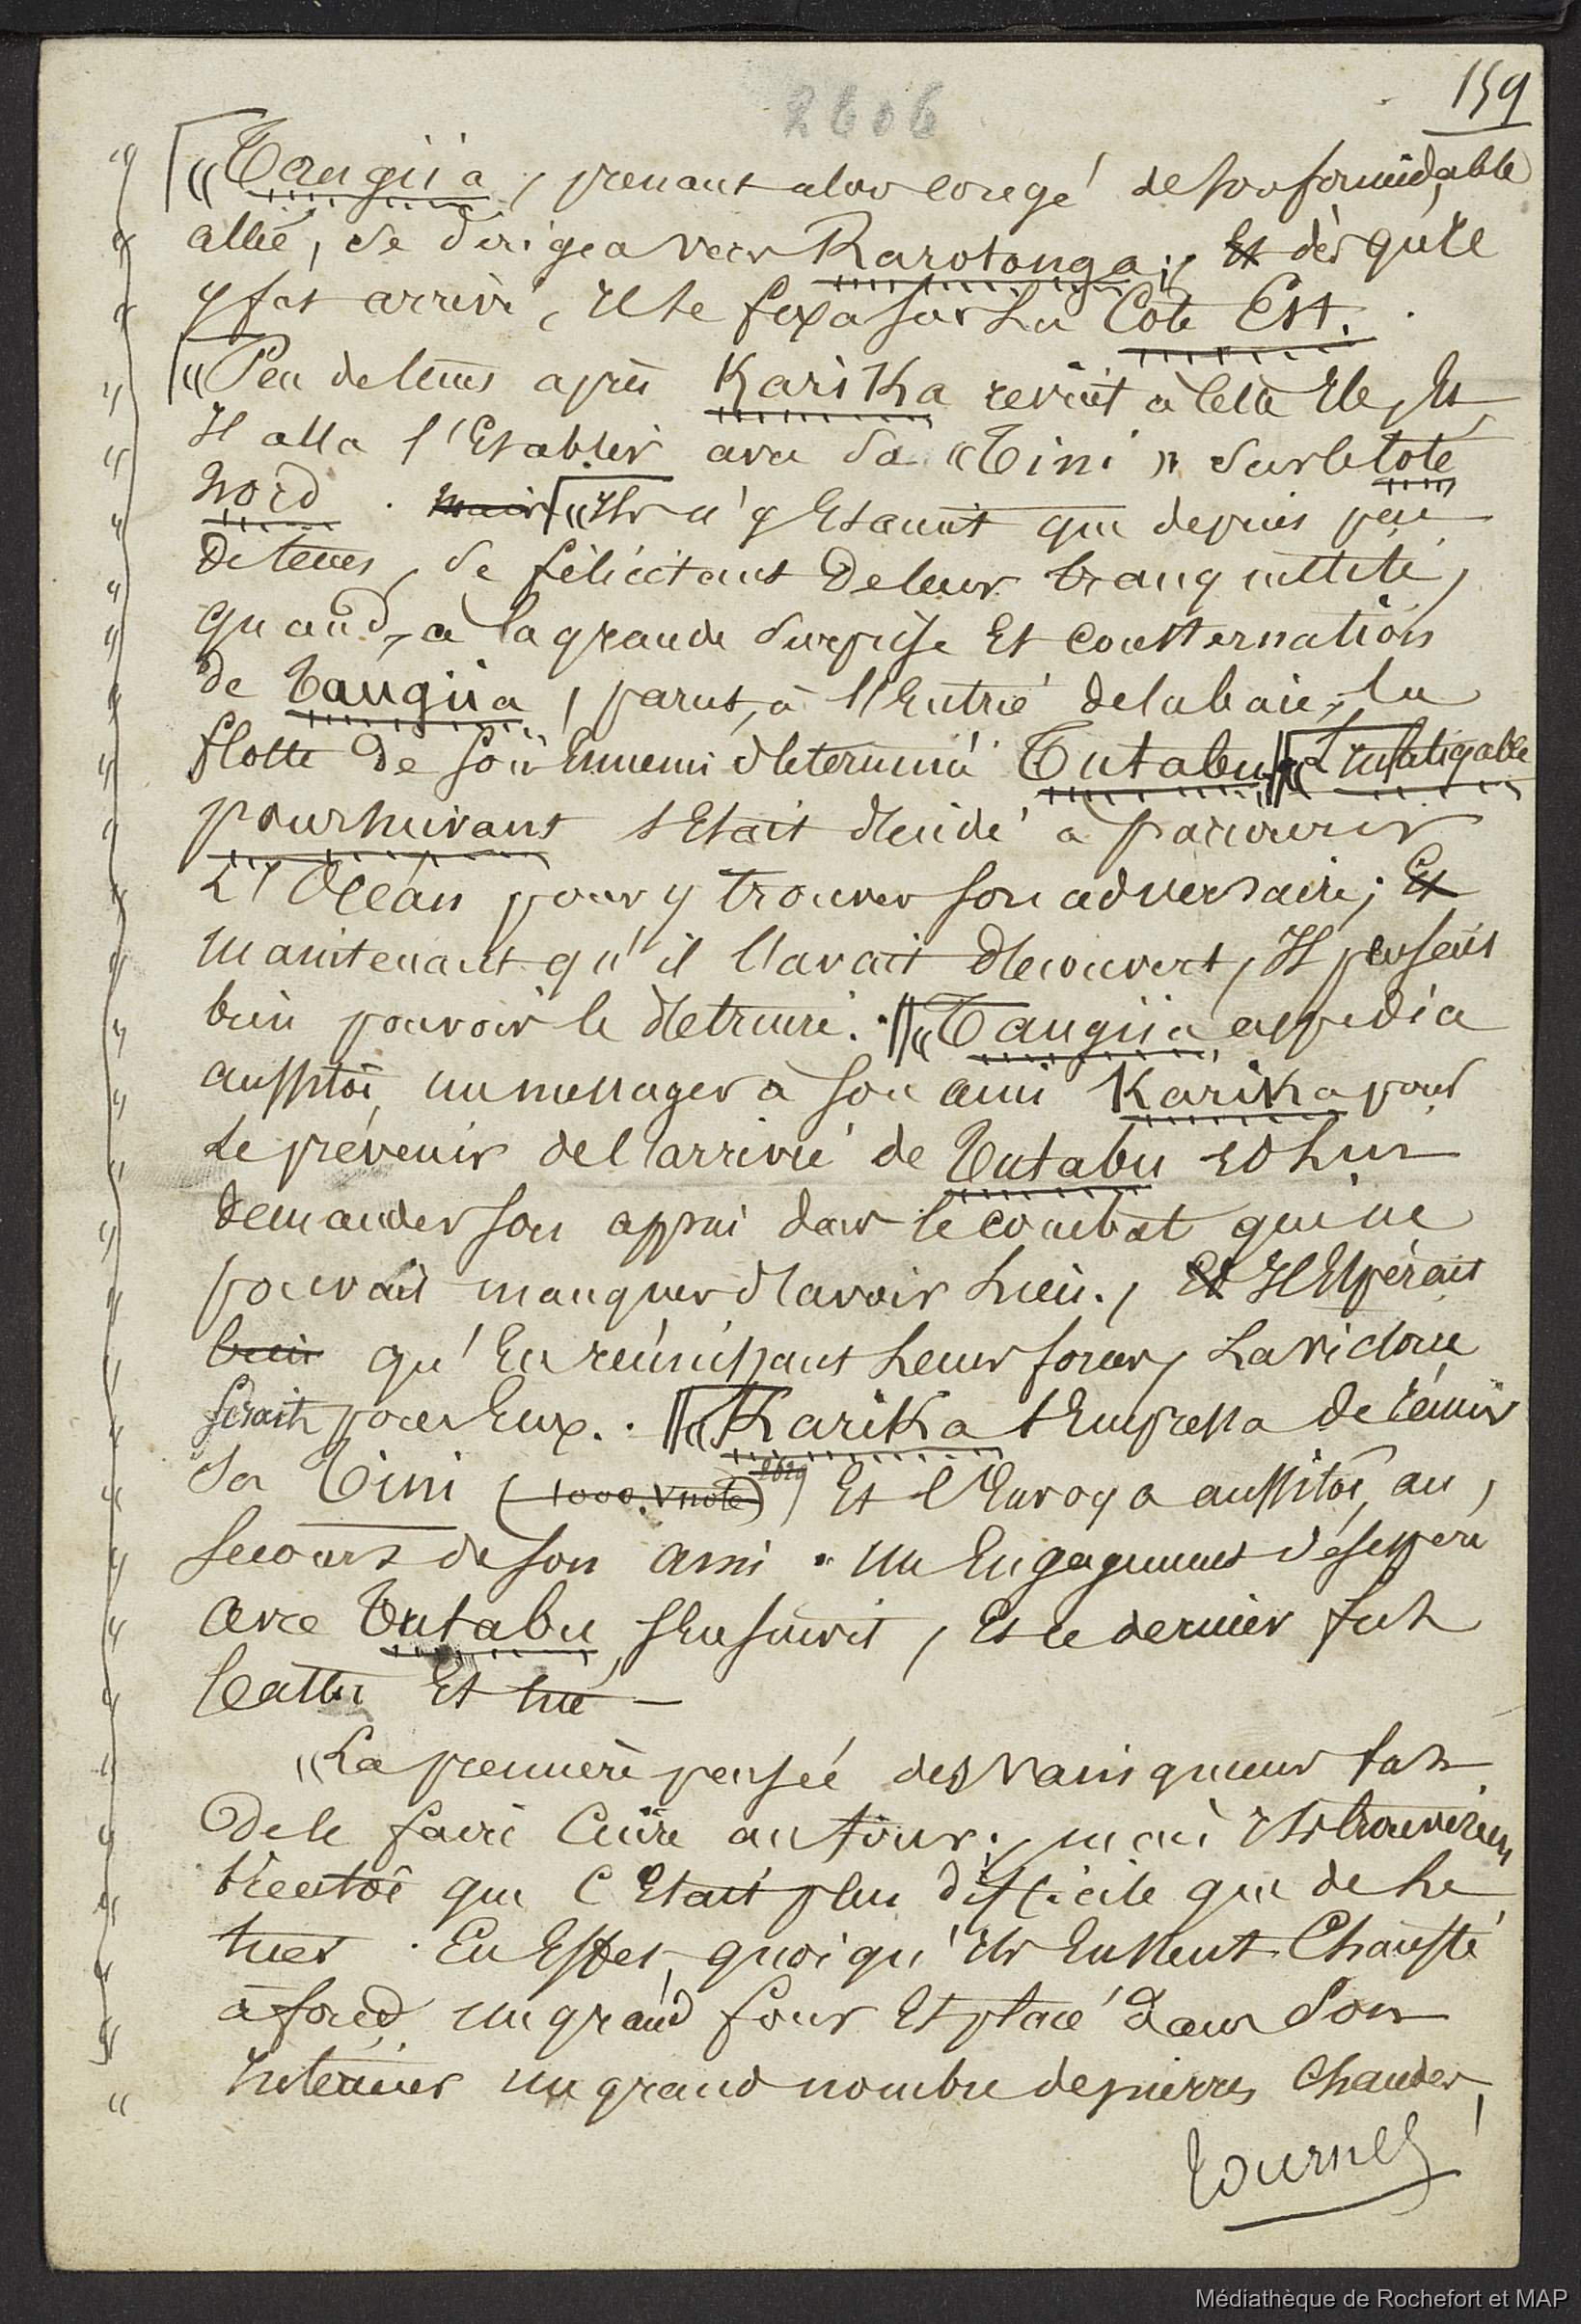 159
2606
« Tangiia, prenant alors congé de son formidable
allié, se dirigea vers Rarotonga; Et dès qu'il
y fut arrivé, Il se fixa sur La Côte Est.
« Peu de tems après Karika revint à cette Ile, Et
Il alla s'Etablir avec sa « Tini » sur le côté
nord. mais « Ils n'y Etaient que depuis peu
de tems, se félicitant de leur tranquillité,
quand, à la grande surprise Et consternation
de Tangiia, parut, à l'Entrée de la baie, la
flotte de son Ennemi déterminé Tutabu. « L'infatigable
poursuivant s'Etait décidé à parcourir
L'Océan pour y trouver son adversaire; Et
maintenant qu'il l'avait découvert, Il pensait
bien pouvoir le détruire. « Tangiia expédia
aussitôt un messager à son ami Karika pour
Le prévenir de l'arrivée de Tutabu Et Lui
demander son appui dans le combat qui ne
pouvait manquer d'avoir Lieu., Et Il Espérait
bien qu'En réunissant Leurs forces, La victoire
serait pour Eux. « Karika s'Empressa de réunir
sa Tini (1000. V note) 2629 Et l'Envoya aussitôt au
secours de son ami. Un Engagement désespéré
avec Tutabu s'Ensuivit, Et ce dernier fut
battu Et tué —
« La première pensée des vainqueurs fut
de le faire Cuire au four; mais Ils trouvèrent
bientôt que C'Etait plus difficile que de Le
tuer. En Effet, quoiqu'Ils Eussent Chauffé
à fond un grand four Et placé dans son
Intérieur un grand nombre de pierres Chaudes,
Tournez
Médiathèque de Rochefort et MAP